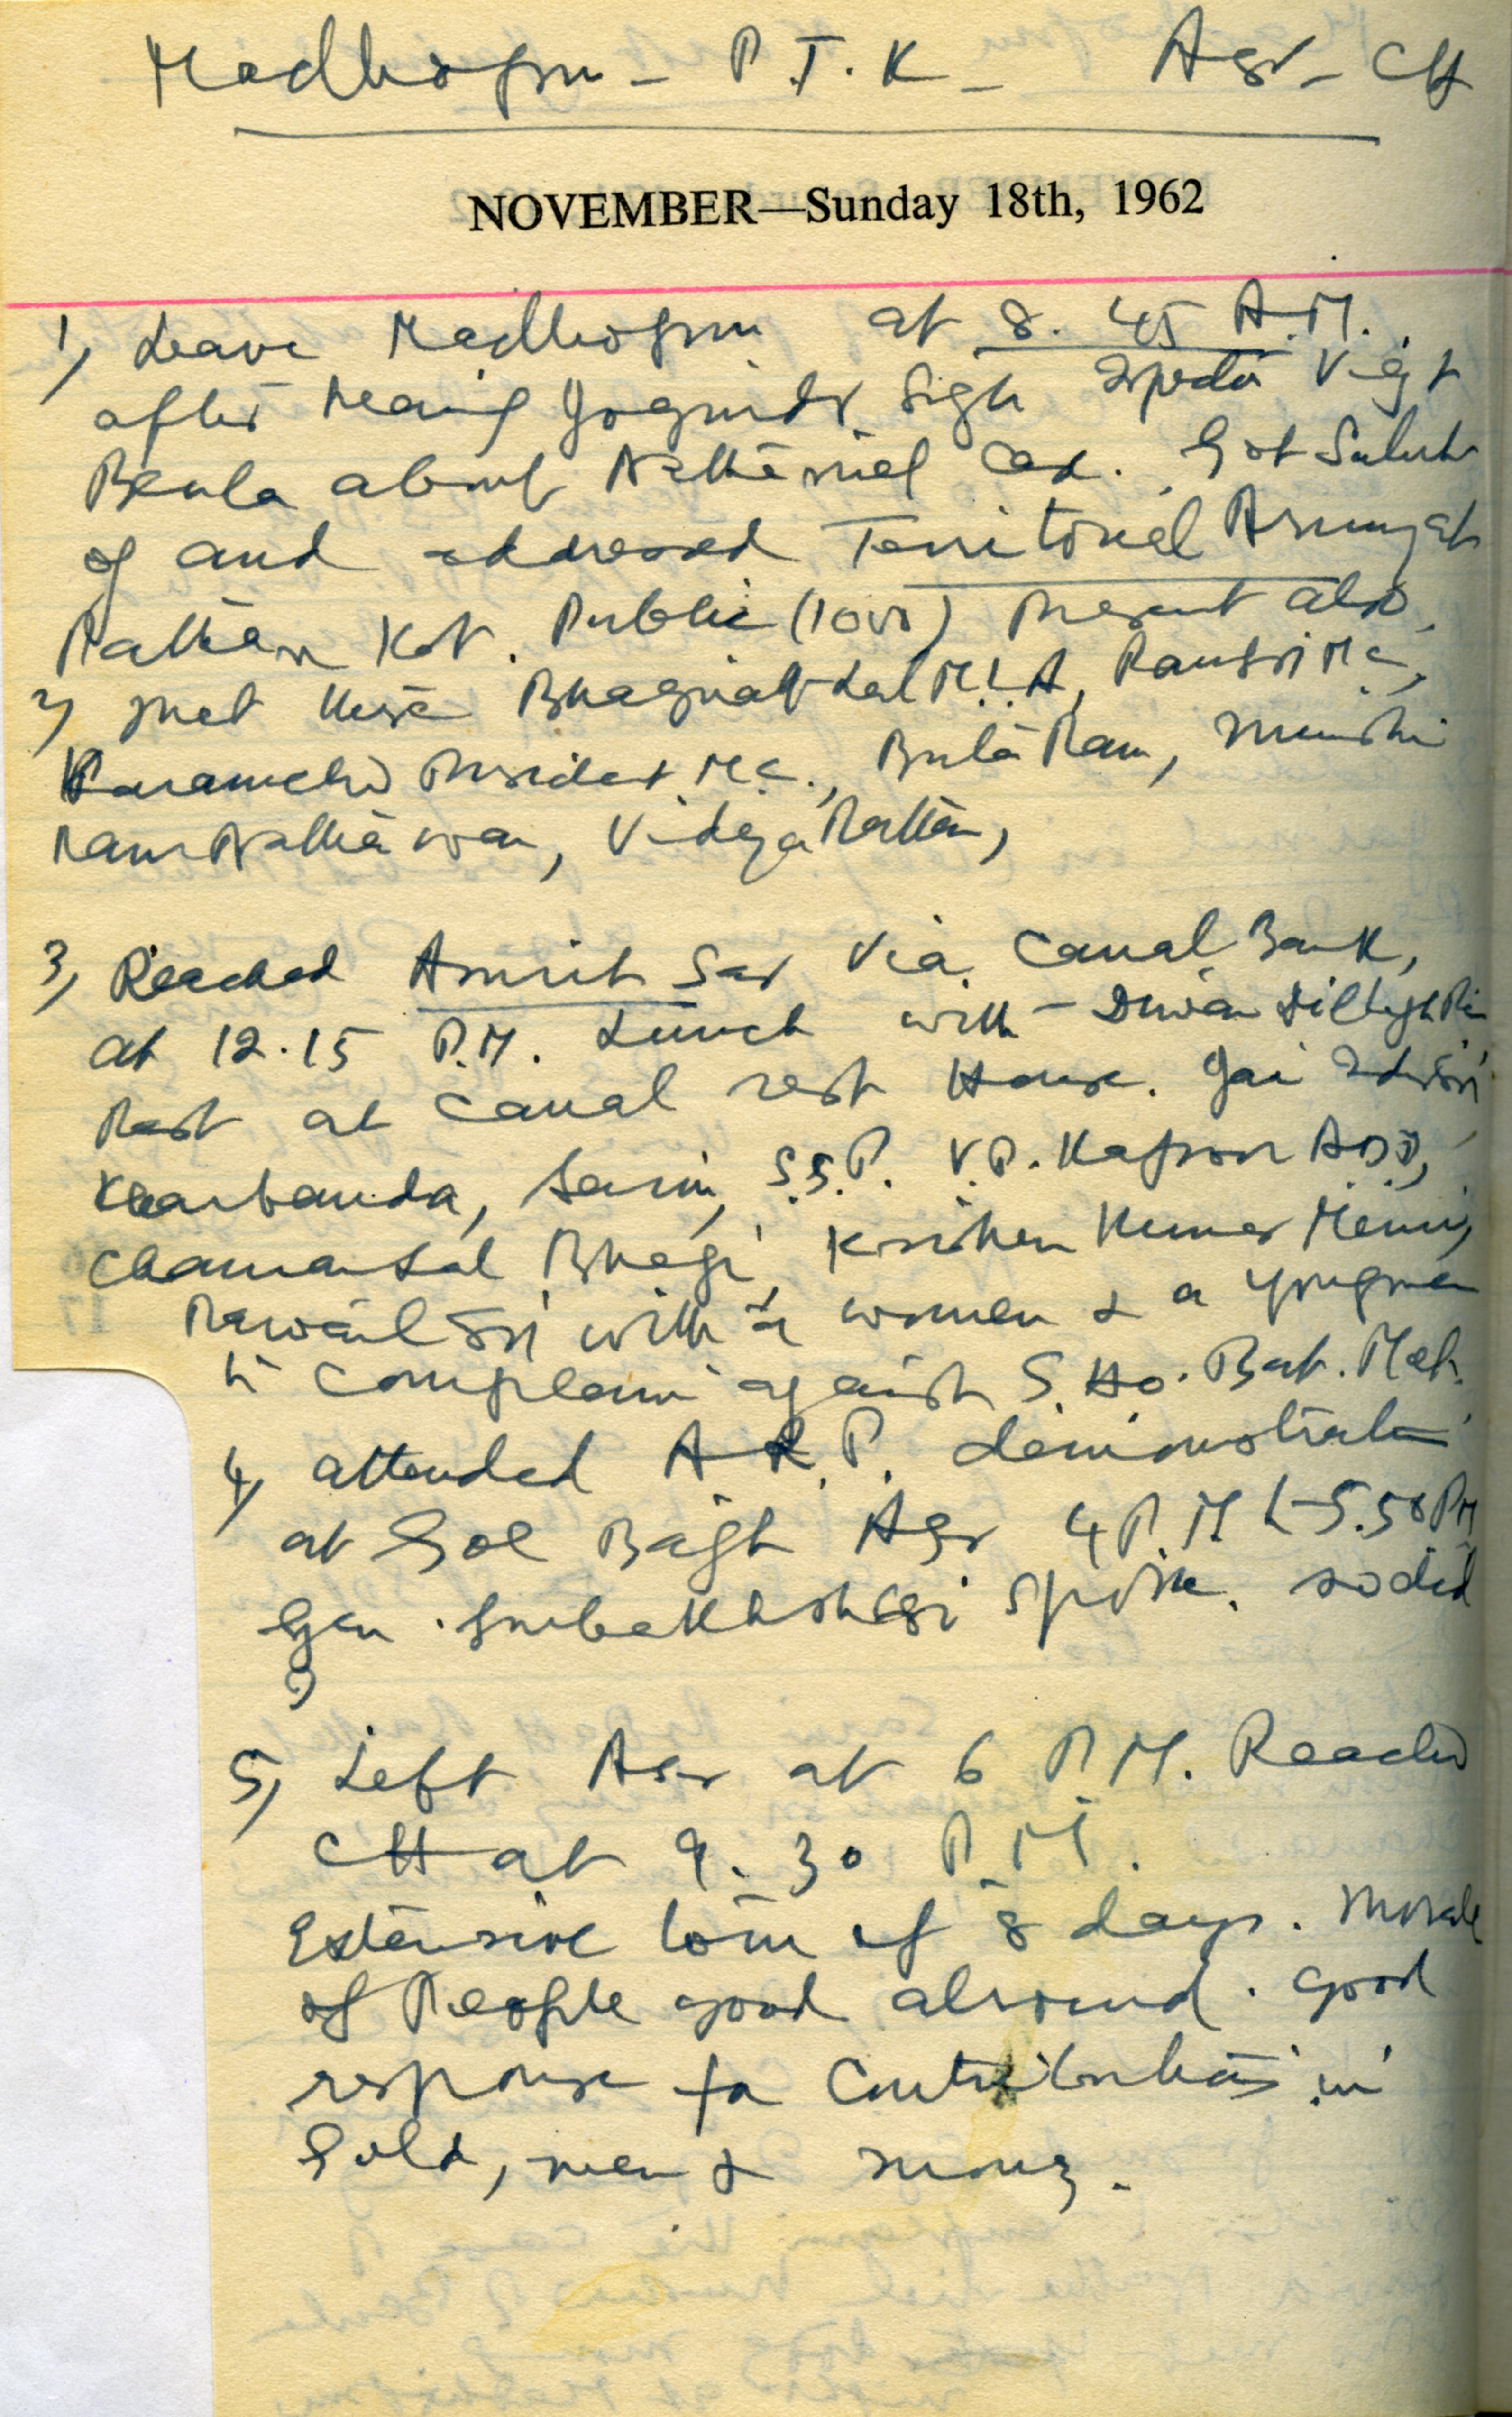 Madhopur - P.T.K - Asr - CH
NOVEMBER—Sunday 18th, 1962
1) Leave Madhopur at 8.45 A.M.
after hearing Joginder Singh Inspector Vigt
Beula about case. Got Salute
of and addressed Territorial Army at
Pathan Kot. Public (1000) present also.
2) Met there Bhagirath Lal M.L.A,
President M.C., Buta Ram, Munshi
Ram Vidya Rattan,
3) Reached Amrit Sar via Canal Bank,
at 12.15 P.M. Lunch with - Diwan
Rest at Canal rest House. Jai Inder Sri
Kharbanda, Sarin, S.S.P. V.P. Kapoor
Chaman Lal Bhagi, Krishen Kumar
with a women & a youngman
to complain against S.H.O.
4) attended A.R.P. demonstration
at Gol Bagh Asr 4 P.M to 5.50 PM
Gen. spoke. so did
I
5) Left Asr at 6 P.M. Reached
CH at 9.30 P.M.
Extensive tour of 8 days. Morale
of People good alround. Good
response for Contributions in
Gold, men & money.